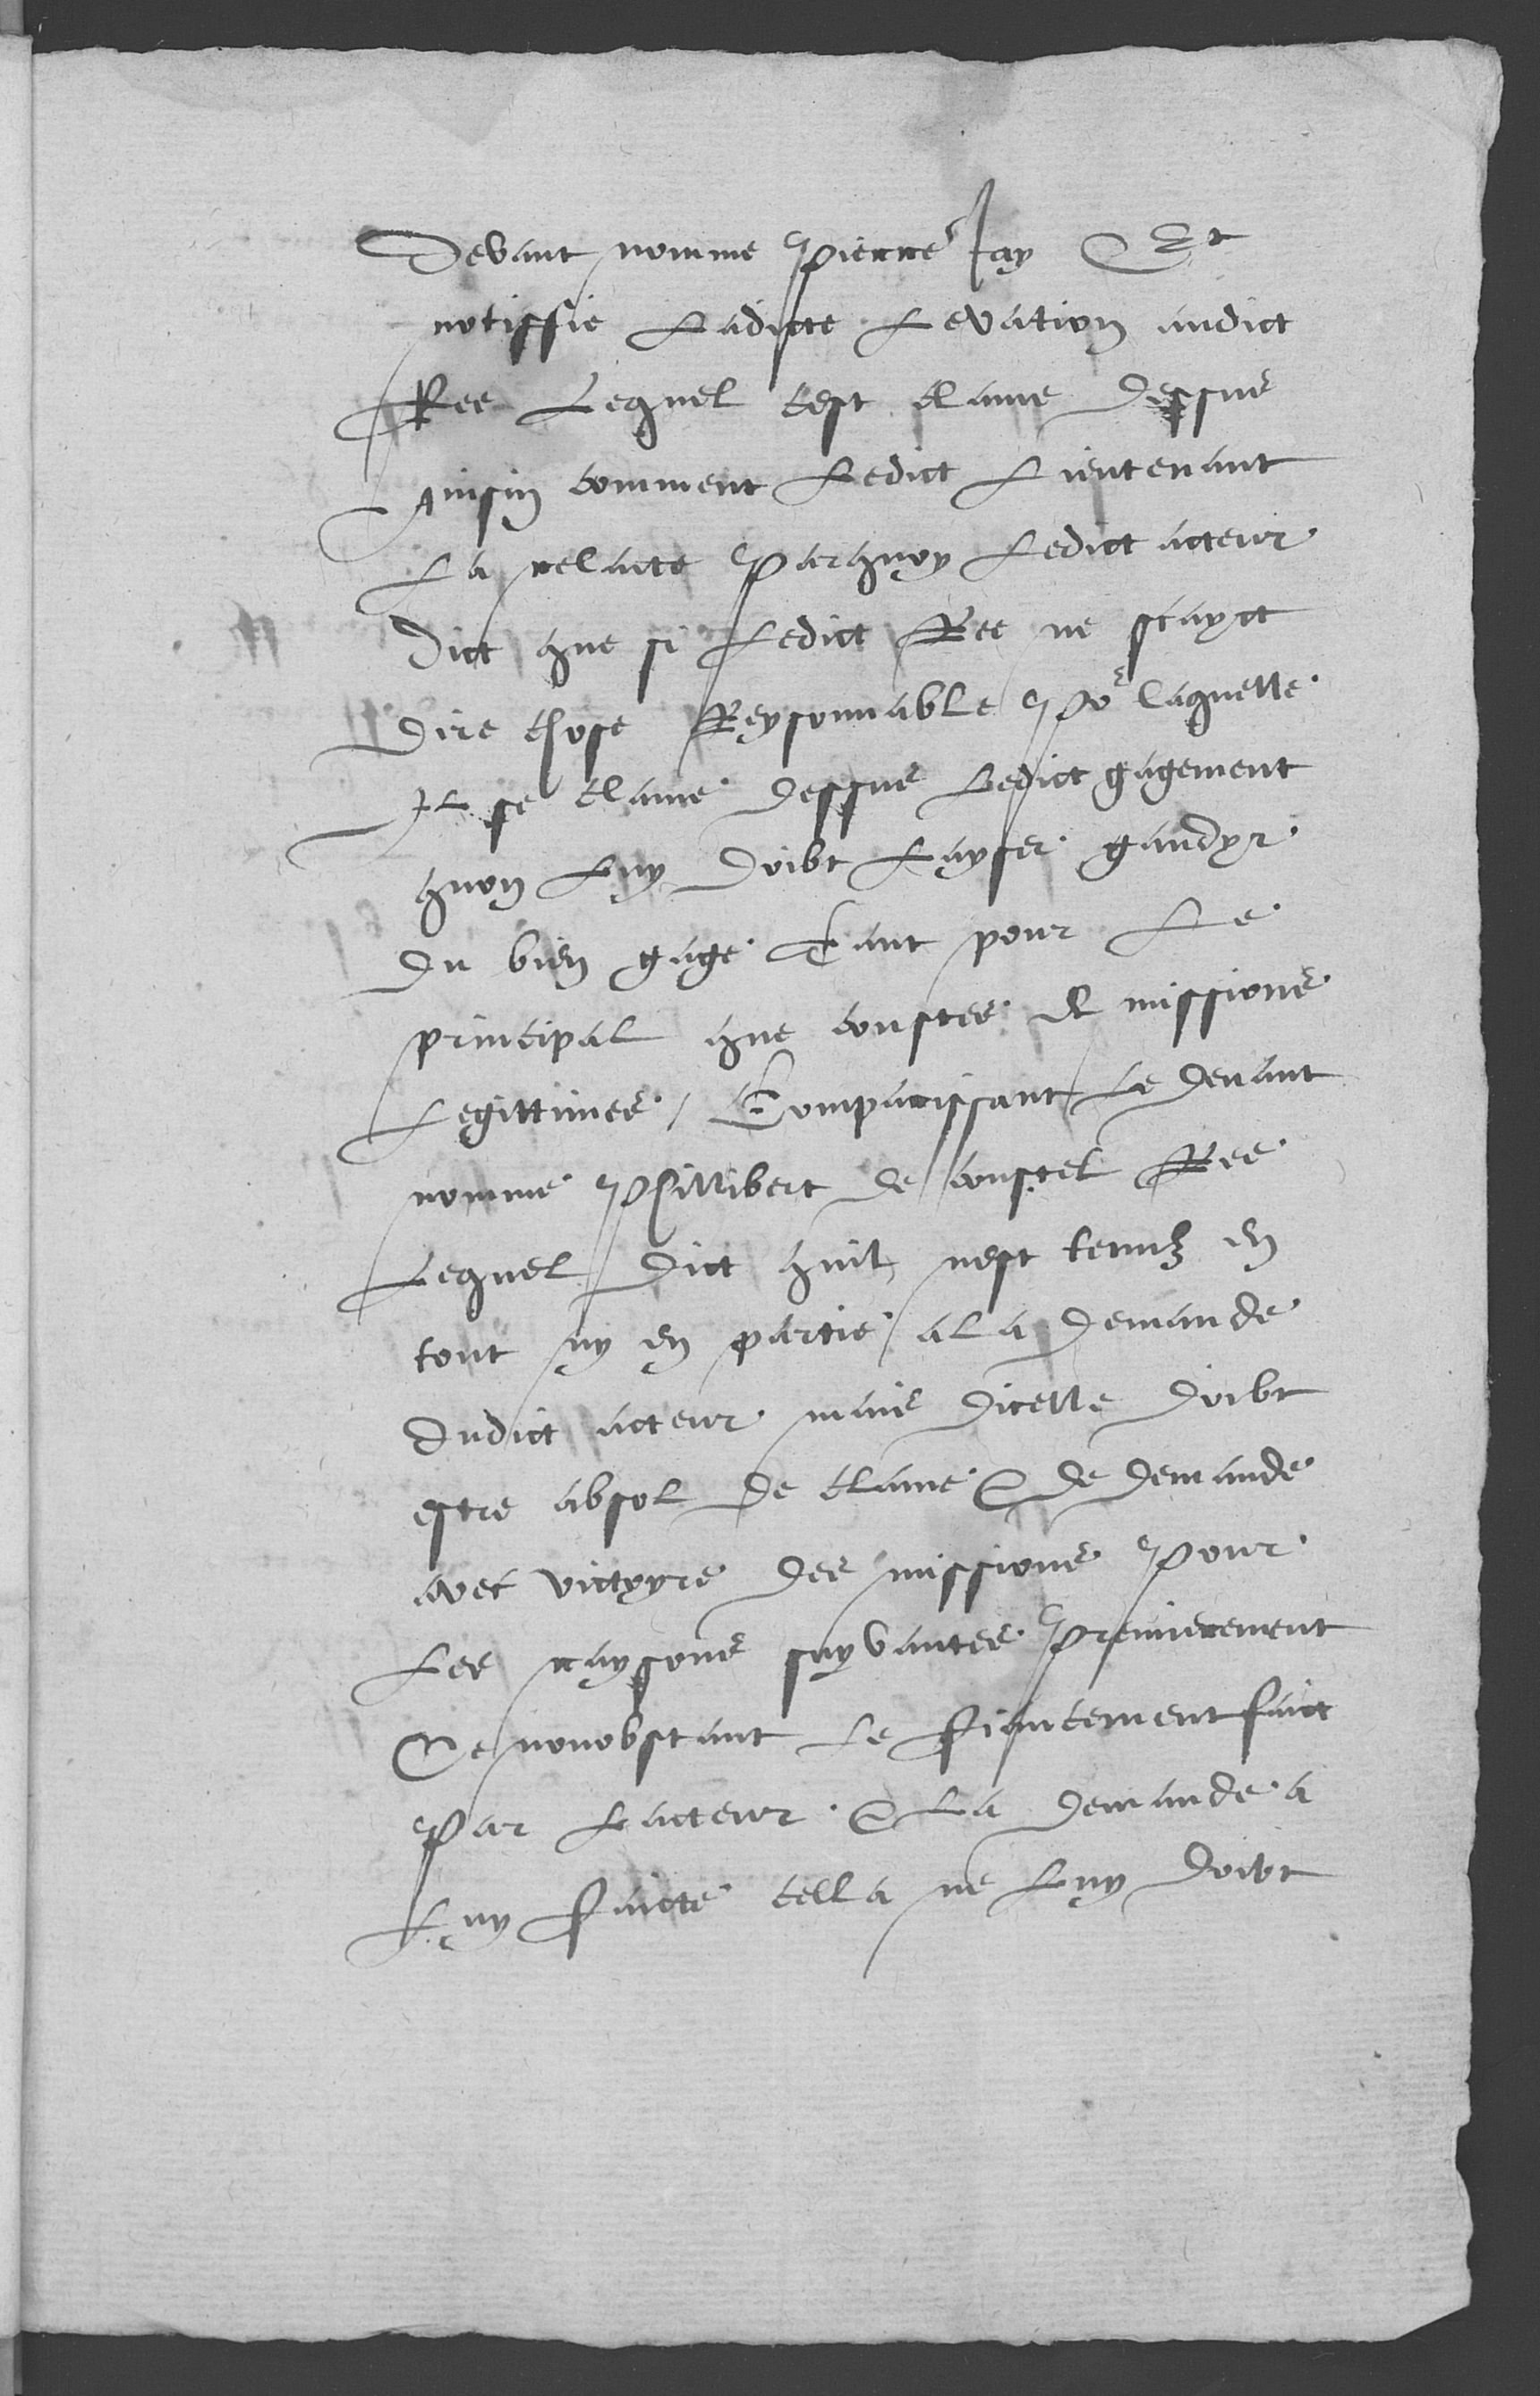 Devant nomme Pierre Jay Et
notiffie Ladicte Levation audict
Ree Lequel cest clame dessus
Ainsin comment Ledict Lieutenant
La relacte Parquoy Ledict acteur
Dict que si Ledict Ree ne scayct
Dire chose Reysonnable Po^r laquelle
Il se clame dessus Ledict gagement
quon Luy Doibt Laysser gaudyr
Du bien gage Tant pour Le
principal que coustes & missions
Legittimes / Comparissant Le devant
nomme Phillibert de coustel Ree
Lequel Dict quil nest tenuz en
tout ny en partie a La Demande
Dudict acteur mais Dicelle Doibt
estre absol De clame & De Demande
avec victoyre Des missions Pour
Les raysons suyvantes Premierement
Ce nonobstant Le fiancement faict
Par Lacteur & La Demande a
Luy faicte cella ne Luy Doibt